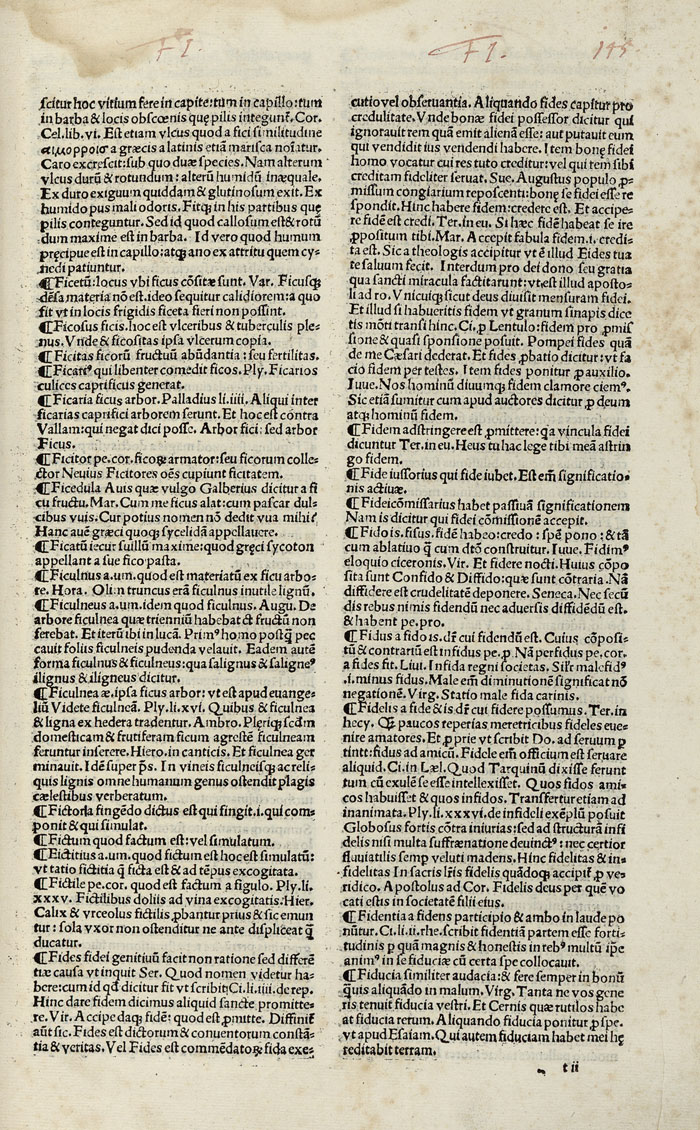 FI.
FI.
145
scitur hoc vitium fere in capite: tum in capillo: tum
in barba & locis obscœnis quę pilis integunt̃. Cor.
Cel. lib. vi. Est etiam vlcus quod a fici similitudine
a græcis a latinis etiã marisca noĩatur.
Caro excrescit: sub quo duæ species. Nam alterum
vlcus durũ & rotundum: alterũ humidũ inæquale.
Ex duro exiguum quiddam & glutinosum exit. Ex
humido pus mali odoris. Fitq; in his partibus quę
pilis conteguntur. Sed id quod callosum est & rotũ
dum maxime est in barba. Id vero quod humum
pręcipue est in capillo: atq; ano ex attritu quem cy-
nedi patiuntur.
¶Ficetũ: locus vbi ficus cõsitæ sunt. Var. Ficusq;
dẽsa materia nõ est. ideo sequitur calidiorem: a quo
fit vt in locis frigidis ficeta fieri non possint.
¶Ficosus ficis. hoc est vlceribus & tuberculis ple-
nus. Vnde & ficositas ipsa vlcerum copia.
¶Ficitas ficorũ fructuũ abũdantia: seu fertilitas.
¶Ficariꝰ qui libenter comedit ficos. Ply. Ficarios
culices caprificus generat.
¶Ficaria ficus arbor. Palladius li. iiii. Aliqui inter
ficarias caprifici arborem serunt. Et hoc est contra
Vallam: qui negat dici posse. Arbor fici: sed arbor
Ficus.
¶Ficitor pe. cor. ficoꝝ armator: seu ficorum colle-
ctor Neuius Ficitores oẽs cupiunt ficitatem.
¶Ficedula Auis quæ vulgo Galberius dicitur a fi
cu fructu. Mar. Cum me ficus alat: cum pascar dul-
cibus vuis. Cur potius nomen nõ dedit vua mihi?
Hanc auẽ gręci quoq; sycelidã appellauere.
¶Ficatũ iecur suillũ maxime: quod gręci sycoton
appellant a sue fico pasta.
¶Ficulnus a. um. quod est materiatũ ex ficu arbo-
re. Hora. Olim truncus erã ficulnus inutile lignũ.
¶Ficulneus a. um. idem quod ficulnus. Augu. De
arbore ficulnea quæ trienniũ habebat & fructũ non
ferebat. Et iterũ ibi in lucã. Primꝰ homo postq̃ pec
cauit folijs ficulneis pudenda velauit. Eadem autẽ
forma ficulnus & ficulneus: qua salignus & salignꝰ
ilignus & iligneus dicitur.
¶Ficulnea æ. ipsa ficus arbor: vt est apud euange-
liũ Videte ficulneã. Ply. li. xvi. Quibus & ficulnea
& ligna ex hedera tradentur. Ambro. Pleriq; scdm̃
domesticam & frutiferam ficum agrestẽ ficulneam
feruntur inserere. Hiero. in canticis. Et ficulnea ger
minauit. Idẽ super p̃s. In vineis ficulneisq; ac reli-
quis lignis omne humanum genus ostendit plagis
cælestibus verberatum.
¶Fictoria fingẽdo dictus est qui fingit. i. qui com-
ponit & qui simulat.
¶Fictum quod factum est: vel simulatum.
¶Fictitius a. um. quod fictum est hoc est simulatũ:
vt tatio fictitia q̃ ficta est & ad tẽpus excogitata.
¶Fictile pe. cor. quod est factum a figulo. Ply. li.
xxxv. Fictilibus doliis ad vina excogitatis. Hier.
Calix & vrceolus fictilis ꝓbantur prius & sic emun
tur: sola vxor non ostenditur ne ante displiceat q̃
ducatur.
¶Fides fidei genitiuũ facit non ratione sed differẽ
tiæ causa vt inquit Ser. Quod nomen videtur ha-
bere: cum id qd̃ dicitur fit vt scribit Ci. li. iiii. de rep.
Hinc dare fidem dicimus aliquid sancte promitte-
re. Vir. Accipe daq; fidẽ: quod est ꝓmitte. Diffinit̃
aũt sic. Fides est dictorum & conuentorum constã-
tia & veritas. Vel Fides est commẽdatoꝝ fida exe-
cutio vel obseruantia. Aliquando fides capitur pro
credulitate. Vnde bonæ fidei possessor dicitur qui
ignorauit rem quã emit alienã esse: aut putauit eum
qui vendidit ius vendendi habere. Item bonę fidei
homo vocatur cui res tuto creditur: vel qui rem sibi
creditam fideliter seruat. Sue. Augustus populo ꝓ-
missum congiarium reposcenti: bonę se fidei esse re
spondit. Hinc habere fidem: credere est. Et accipe-
re fidẽ est credi. Ter. in eu. Si hæc fidẽ habeat se ire
ꝓpositum tibi. Mar. Accepit fabula fidem. i. credi-
ta est. Sic a theologis accipitur vt ẽ illud Fides tua
te saluum fecit. Interdum pro dei dono seu gratia
qua sancti miracula factitarunt: vt est illud aposto-
li ad ro. Vnicuiq; sicut deus diuisit mensuram fidei.
Et illud si habueritis fidem vt granum sinapis dice
tis mõti transi hinc. Ci. ꝓ Lentulo: fidem pro ꝓmis
sione & quasi sponsione posuit. Pompei fides quã
de me Cæsari dederat. Et fides ꝓbatio dicitur: vt fa
cio fidem per testes. Item fides ponitur ꝓ auxilio.
Iuue. Nos hominũ diuumq; fidem clamore ciemꝰ.
Sic etiã sumitur cum apud auctores dicitur ꝓ deum
atq; hominũ fidem.
¶Fidem adstringere est ꝓmittere: q̃a vincula fidei
dicuntur Ter. in eu. Heus tu hac lege tibi meã astrin
go fidem.
¶Fide iussorius qui fide iubet. Est em̃ significatio-
nis actiuæ.
¶Fideicõmissarius habet passiuã significationem
Nam is dicitur qui fidei cõmissionẽ accepit.
¶Fido is. fisus. fidẽ habeo: credo: spẽ pono: & tã
cum ablatiuo q̃ cum dtõ construitur. Iuue. Fidimꝰ
eloquio ciceronis. Vir. Et fidere nocti. Huius cõpo
sita sunt Confido & Diffido: quæ sunt cõtraria. Nã
diffidere est crudelitatẽ deponere. Seneca. Nec secũ
dis rebus nimis fidendũ nec aduersis diffidẽdũ est.
& habent pe. pro.
¶Fidus a fido is. dr̃ cui fidendũ est. Cuius cõposi-
tũ & contrariũ est infidus pe. ꝓ. Nã perfidus pe. cor.
a fides fit. Liui. Infida regni societas. Sil'r malefidꝰ
. i. minus fidus. Male em̃ diminutionẽ significat nõ
negationẽ. Virg. Statio male fida carinis.
¶Fidelis a fide & is dr̃ cui fidere possumus. Ter. in
hecy. Q; paucos reperias meretricibus fideles eue-
nire amatores. Et ꝓprie vt scribit Do. ad seruum ꝑ
tinet: fidus ad amicũ. Fidele em̃ officium est seruare
aliquid. Ci. in Læl. Quod Tarquinũ dixisse ferunt
tum cũ exulẽ se esse intellexisset. Quos fidos ami-
cos habuisset & quos infidos. Transfertur etiam ad
inanimata. Ply. li. xxxvi. de infideli exẽplũ posuit
Globosus fortis cõtra iniurias: sed ad structurã infi
delis nisi multa suffrænatione deuinctꝰ: nec certior
fluuiatilis semp veluti madens. Hinc fidelitas & in-
fidelitas In sacris lr̃is fidelis quãdoq; accipit̃ ꝓ ve-
ridico. Apostolus ad Cor. Fidelis deus per quẽ vo
cati estis in societatẽ filii eius.
¶Fidentia a fidens participio & ambo in laude po
nũtur. Ci. li. ii. rhe. scribit fidentiã partem esse forti-
tudinis ꝑ quã magnis & honestis in rebꝰ multũ ip̃e
animꝰ in se fiduciæ cũ certa spe collocauit.
¶Fiducia similiter audacia: & fere semper in bonũ
q̃uis aliquãdo in malum. Virg. Tanta ne vos gene
ris tenuit fiducia vestri. Et Cernis quæ rutilos habe
at fiducia rerum. Aliquando fiducia ponitur ꝓ spe.
vt apud Esaiam. Qui autem fiduciam habet mei hę
reditabit terram.
t ii